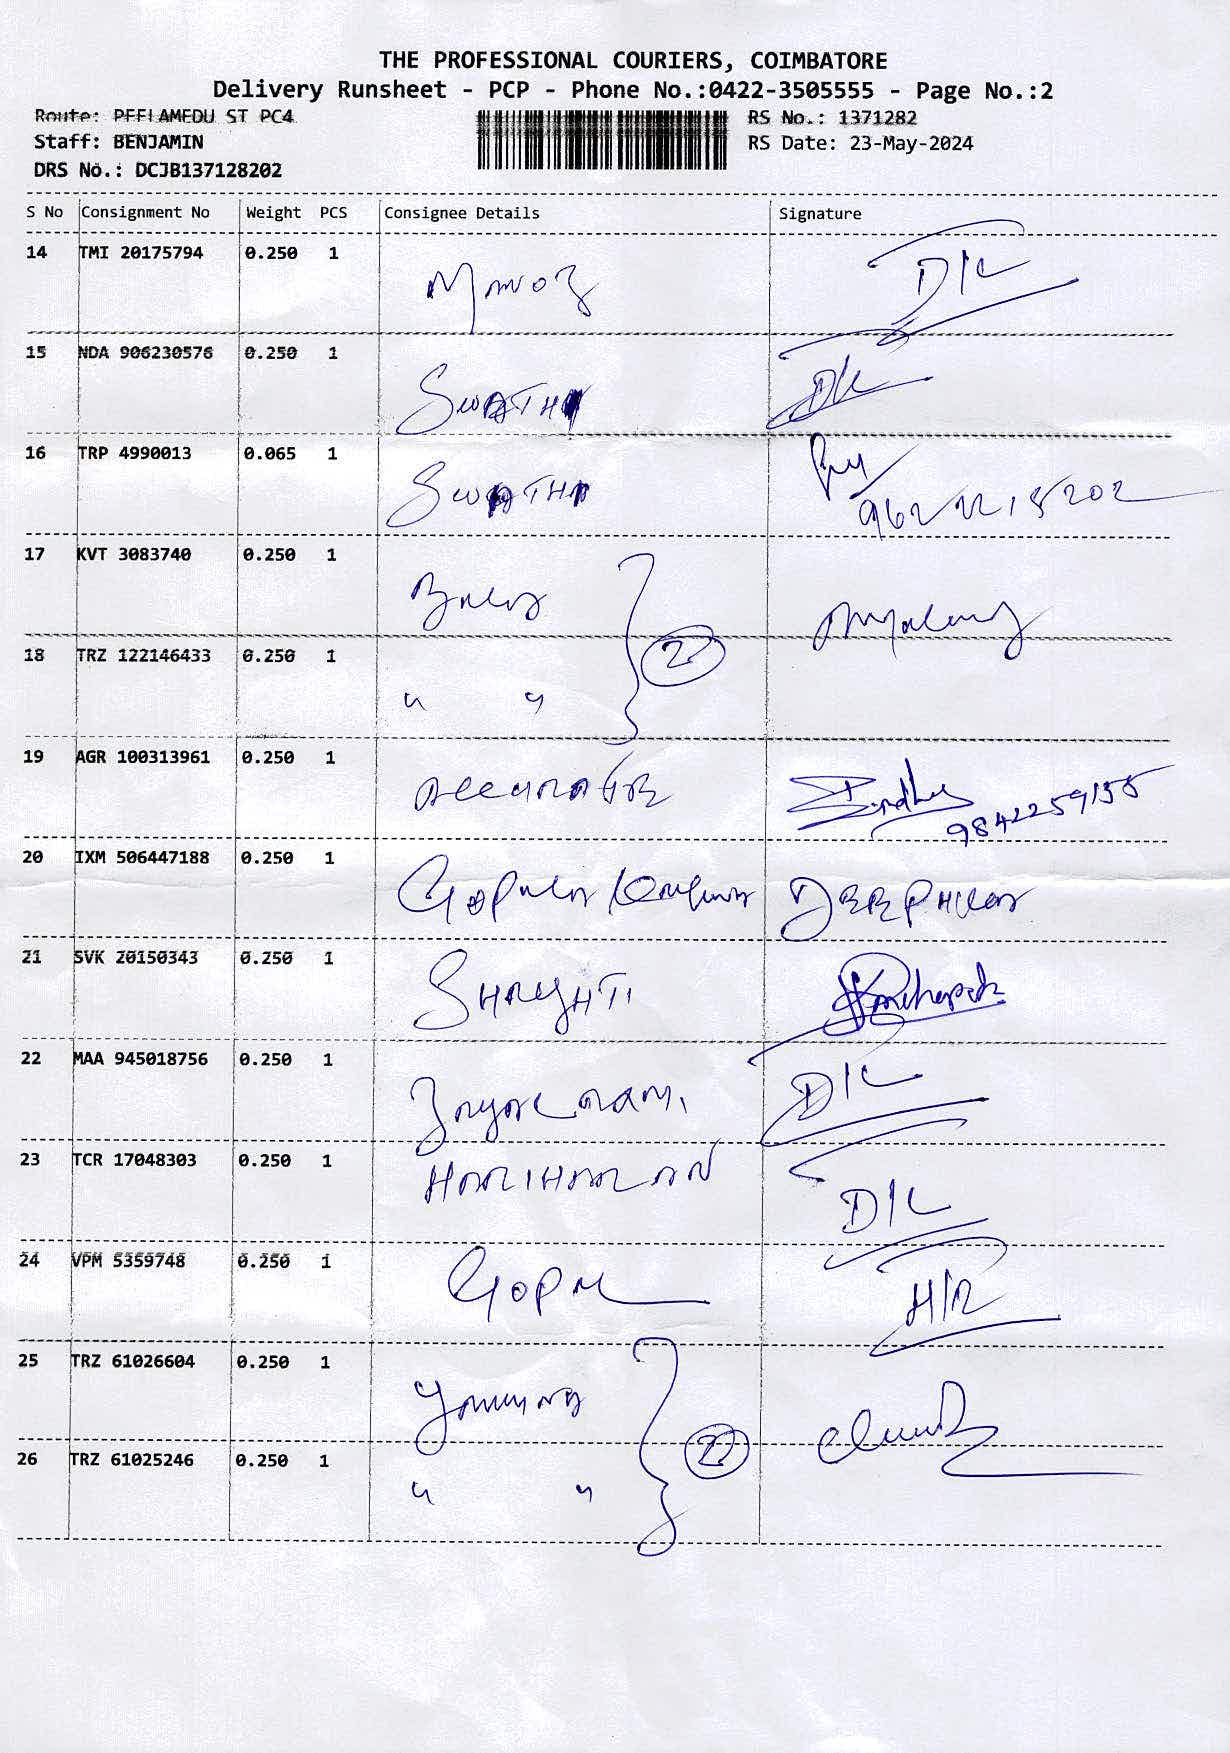 THE PROFESSIONAL COURIERS, COIMBATORE
Delivery Runsheet - PCP - Phone No.:0422-3505555 - Page No.:2
Route: PEELAMEDU ST PC4 RS No.: 1371282
Staff: BENJAMIN RS Date: 23-May-2024
DRS No.: DCJB137128202
S No Consignment No Weight PCS Consignee Details Signature
14 TMI 20175794 0.250 1 Manoj D/L
15 NDA 906230576 0.250 1 SWATHI D/L
16 TRP 4990013 0.065 1 SWATHI
17 KVT 3083740 0.250 1
18 TRZ 122146433 0.250 1 " " 2
19 AGR 100313961 0.250 1 ACCURATE Sindhu
9842259155
20 IXM 506447188 0.250 1
21 SVK 20150343 0.250 1
22 MAA 945018756 0.250 1 D/L
23 TCR 17048303 0.250 1 HARIHARAN D/L
24 VPM 5359748 0.250 1 GOPAL H/R
25 TRZ 61026604 0.250 1
26 TRZ 61025246 0.250 1 " " 2